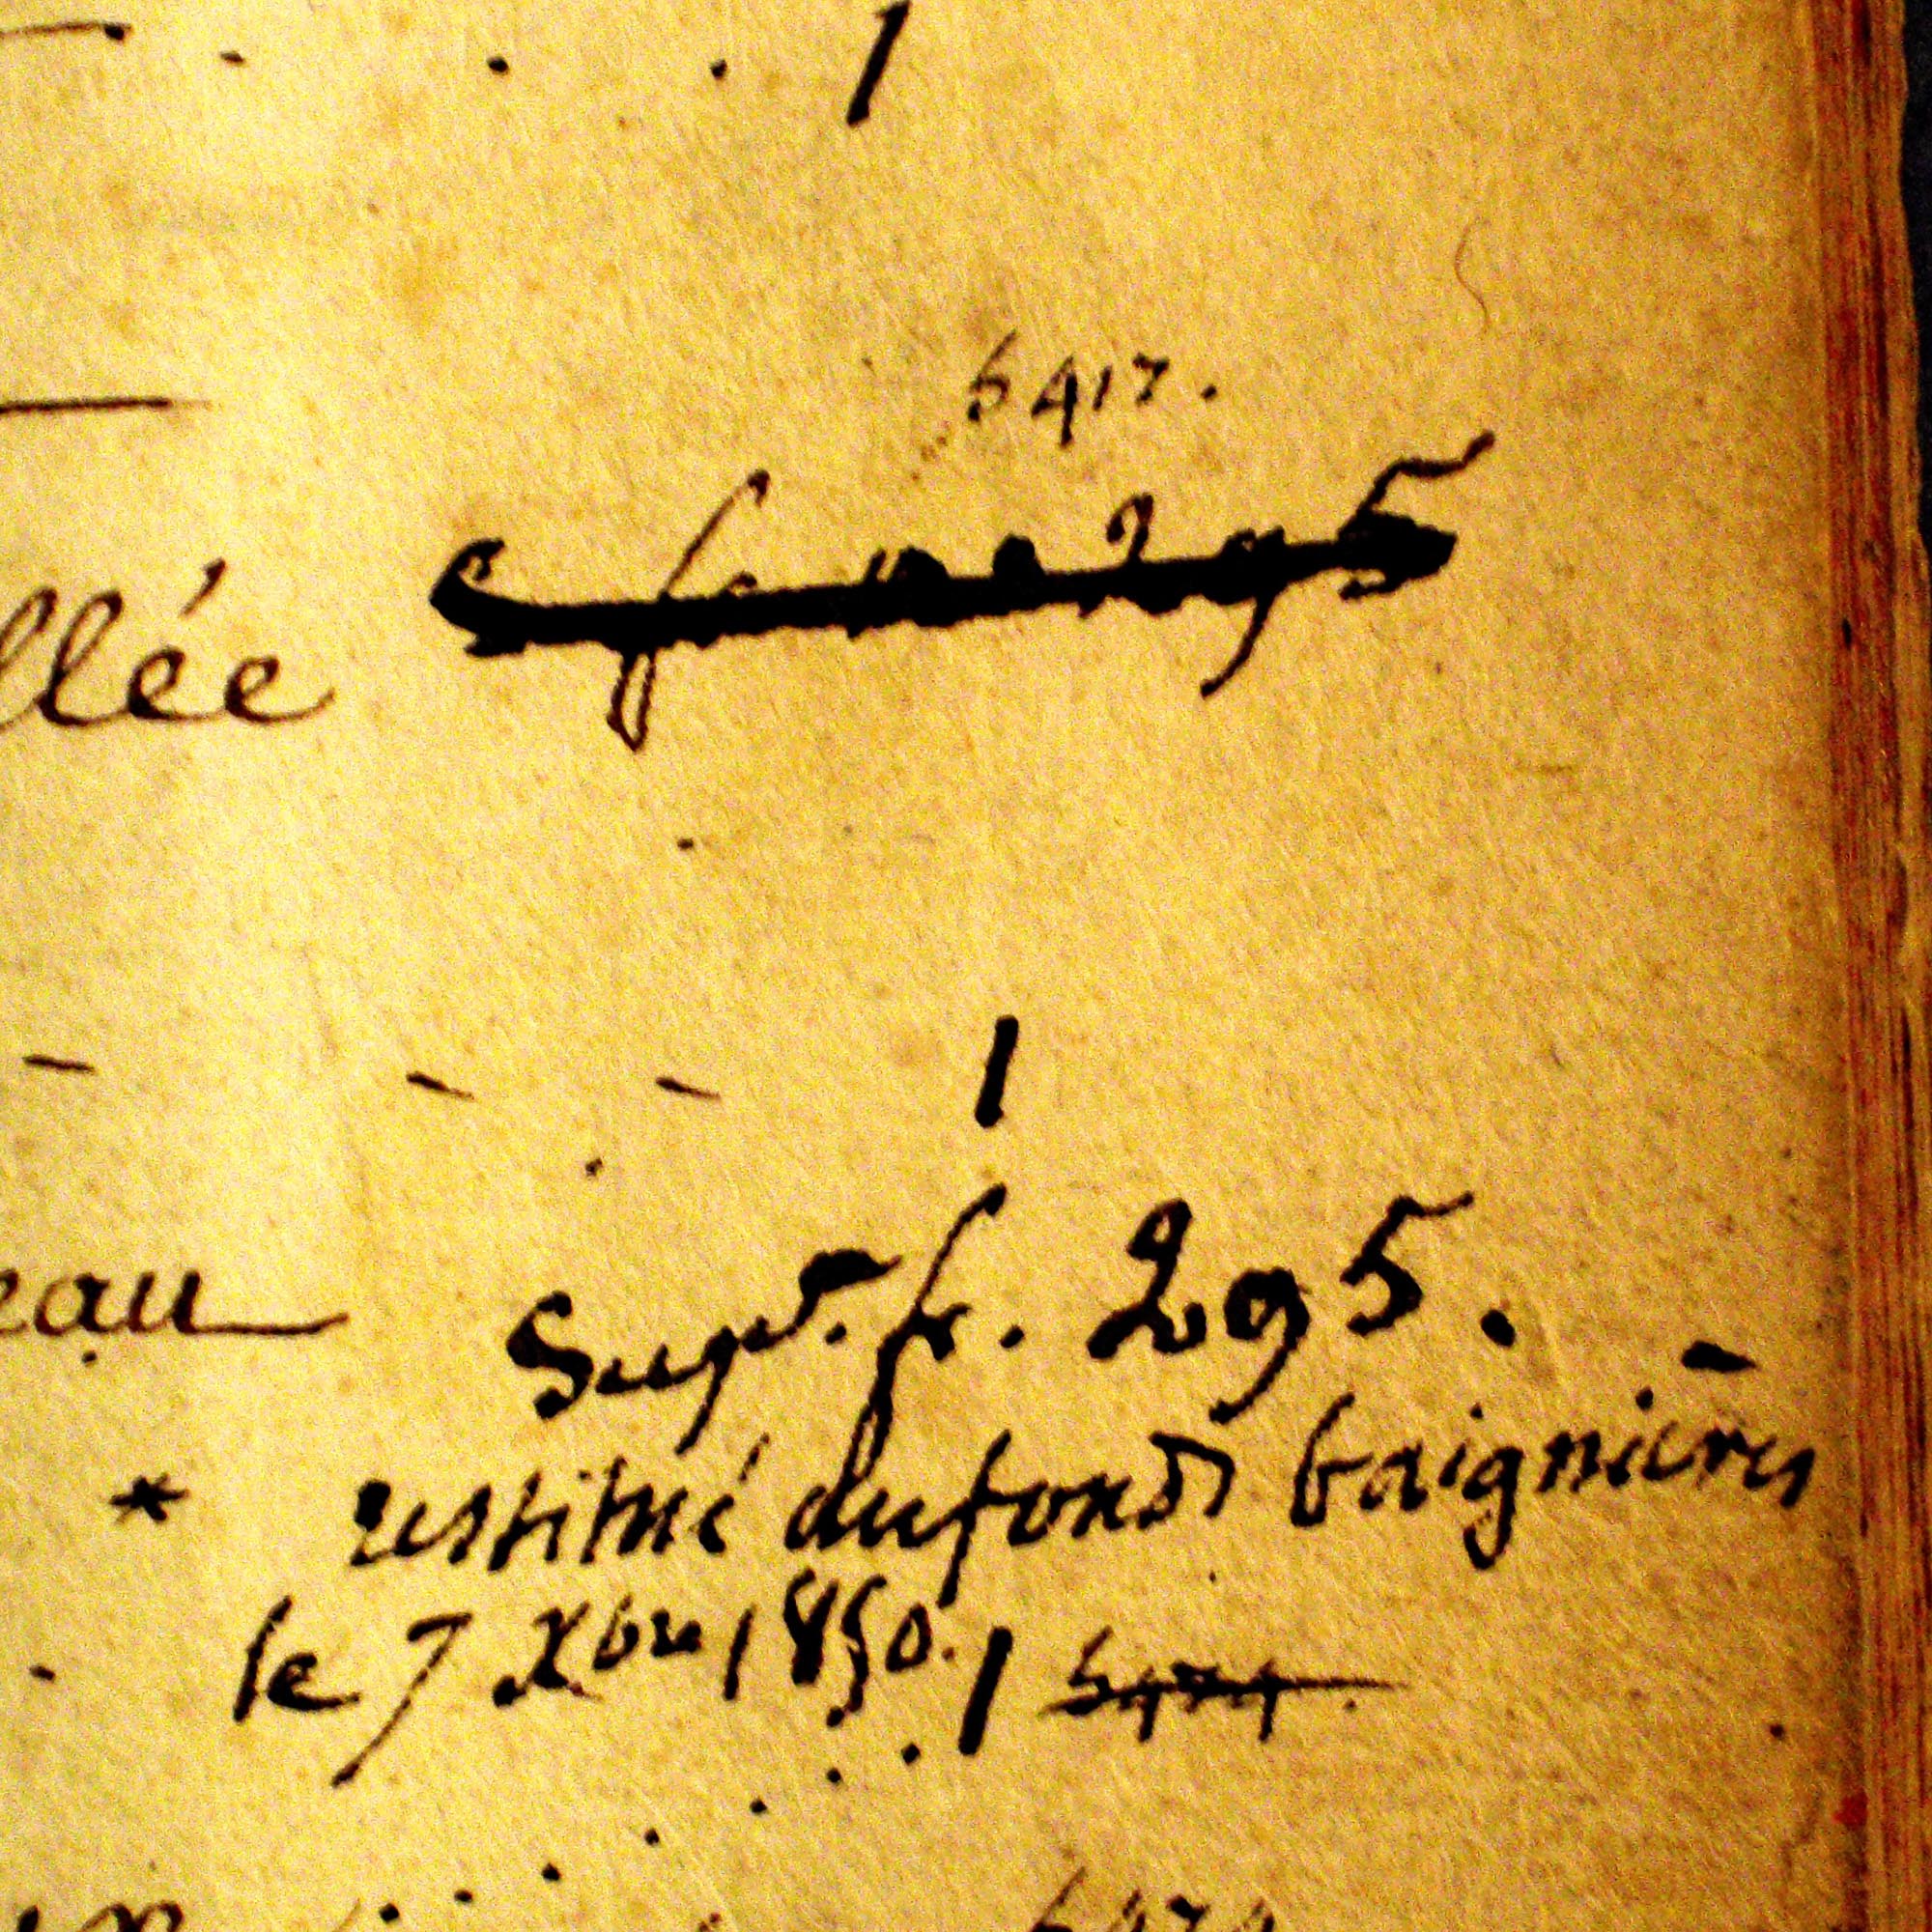 . . . 1
5417.
llée
- - - 1
eau Sup.t fr. 295.
* restitué du fonds baignières
le 7 Xbre 1850. 1 5474.